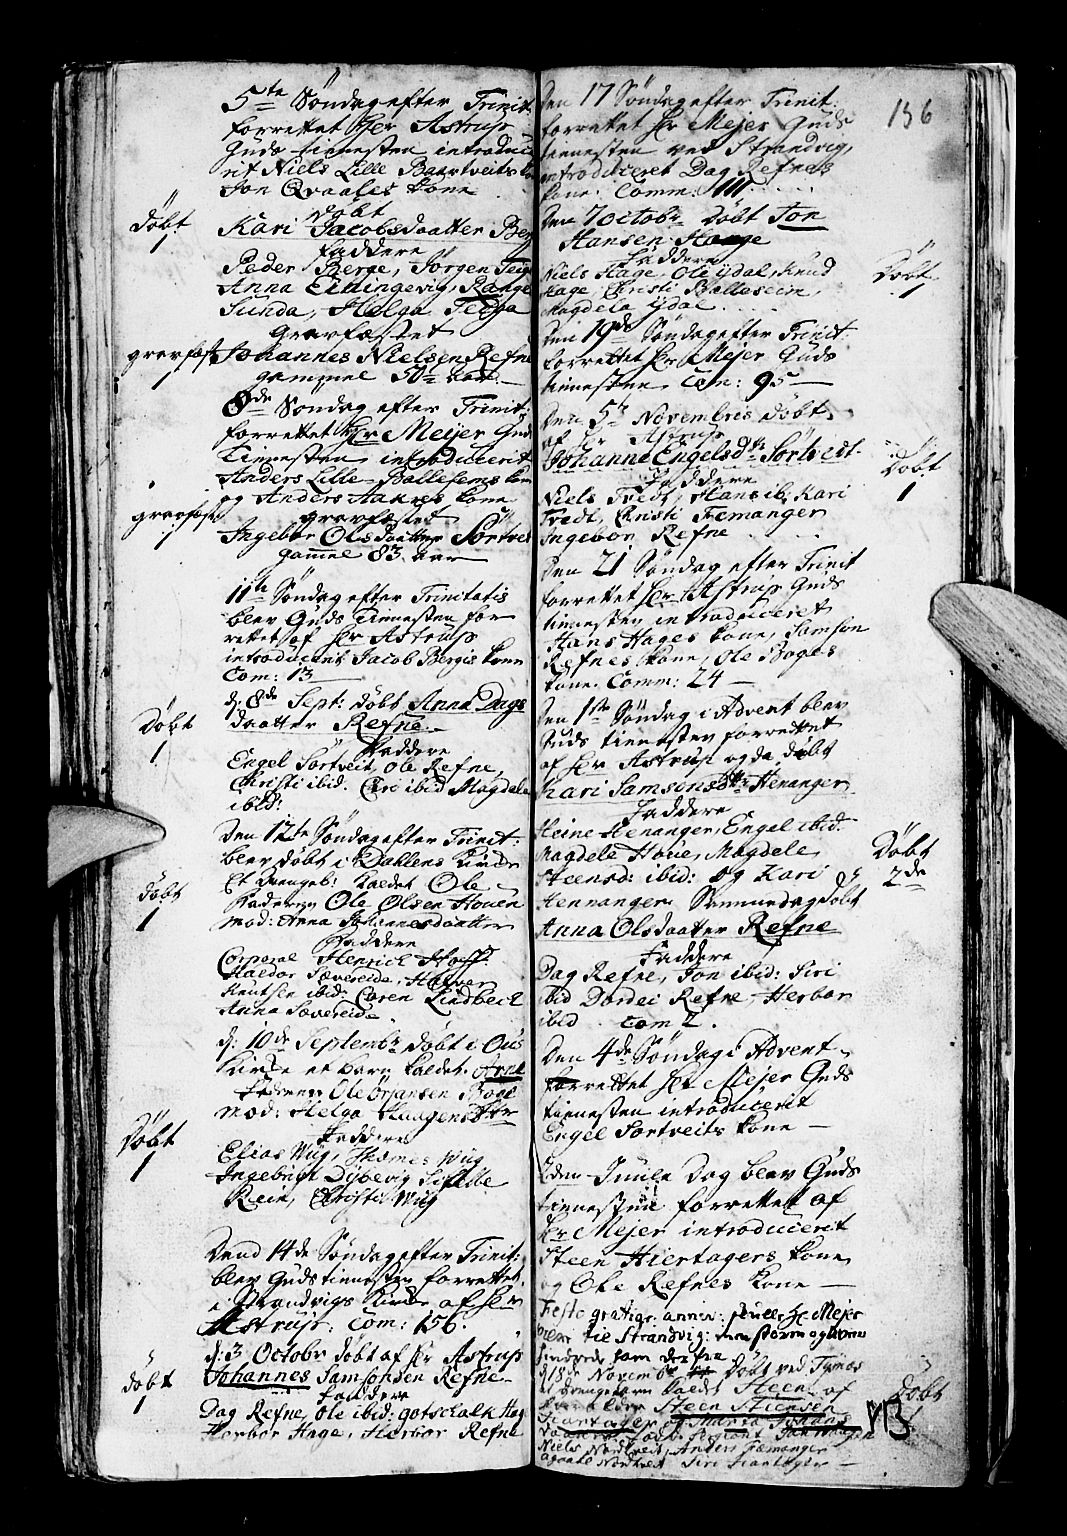 5te Søndag efter Trinit:
forrettet Hr Astrup
Guds tienesten introduce
ret Niels Lille Baartveits
Jon Qvaales kone
døbt
Døbt
1
Kari Jacobsdaatter Berg
faddere
Peder Berge, Jørgen Teig
Anna Eldingevig, Range
Sunda, Helga Teiga
Gravfæstet
gravfæst
1
Johannes Nielsen Refne
gammel 50 aar
8de Søndag efter Trinit:
forrettet Hr Meijer Guds
Tienesten introducerit
Anders Lille-Ballesems kone
og Anders Aakres kone
gravfæsted
gravfæst
1
Ingebor Olsdaatter Sørtvet
gammel 83 aar
11te Søndag efter Trinitatis
blev Guds Tienesten for
rettet af Hr Astrup
introduceret Jacob Bergis kone
Com: 13
Døbt
1
d. 8de Sept: døbt Anna Dags
daatter Refne
faddere
Engel Sørtveit, Ole Refne,
Christi ibid. ibid Magdele
ibid:
Den 12te Søndag efter Trinit:
blev døbt i Kirke
Et drengeb: kaldet Ole
døbt
1
faderen Ole Olsen Houen
mod: Anna Johannesdaatter
Faddere
Corporal Henrich Hoff
Haldor Sævereide, Halver
Knutsen ibid: Caren Lindbeck
Anna Sævereide
d: 10de Septembr døbt i Ous
Kirke et barn kaldet Arne
Faderen Ole Ørjansen Boge
Mod: Helga Haagensdtr
Faddere
Døbt
1
Elias Wiig, Thomes Wiig
Ingebrigt Dybevig
Rein, Christi Wiig
Dend 14de Søndag efter Trinit:
blev Guds tienesten forrettet
i Strandvigs Kirke af Her
Astrup: Com: 156.
døbt
1
d: 3 Octobr døbt af Hr Astrup
Johannes Samsonsen Refne
faddere
Dag Refne, Ole ibid: gotschalk Hag
Herbor Hage, Herbor Refne
156
Den 17 Søndag efter Trinit:
forrettet Hr Mejer Guds
tienesten ved Strandvig,
introduceret Dag Refnes
kone. Comm:
Den 7 octobr døbt Jon
Hansen Hauge
Faddere
Døbt
1
Niels Hage, Ole Ydal, Knud
Hage, Christi Balleseim,
Magdela Ydal
Den 19de Søndag efter Trinit:
forrettet Hr Mejer Guds
tienesten Com: 95
Den 5te Novembris døbt
af Hr Astrup
Døbt
1
Johanne Engelsdtr Sørtvedt.
Faddere
Niels Tvedt, Hans ib. Kari
Tvedt, Christi Femanger
Ingebor Refne
Den 21 Søndag efter Trinit
forrettet Hr Astrup Guds
tienesten introduceret
Hans Hages kone, Samson
Refnes kone, Ole Boges
kone. Comm: 24
Den 1ste Søndag i Advent blev
Guds tienesten forrettet
af Hr Astrup og da døbt
Kari Samsonsdtr Henanger
Faddere
Døbt
2de
Heine Henanger, Engel ibid.
Magdele Houe, Magdele
Steensd: ibid: og Kari
Hennanger Sammendag døbt
Anna Olsdaatter Refne
Faddere
Dag Refne, Jon ibid: Siri
ibid Dordei Refne Herbor
ibid com 2.
Den 4de Søndag i Advent
forrettet Hr Mejer Guds
tienesten introducerit
Engel Sørtveits kone
2den Juule Dag blev Guds
tienesten forrettet af
Hr Mejer introducerit
Steen Hiertagers kone
og Ole Refnes kone
Festo gratiar: annin: skulle Hr Mejer
være til Strandvig: men storm og
hindrede ham derfra
Døbt
1
d 18de Novembr døbt ved Tysnes
et drengebarn kaldet Steen af
forældre Steen Stensen
Hiartager og Marta Johans
daatter
Niels Nordtveit, Anders Femanger
Agaate Nordtveit Siri Hiartager
113